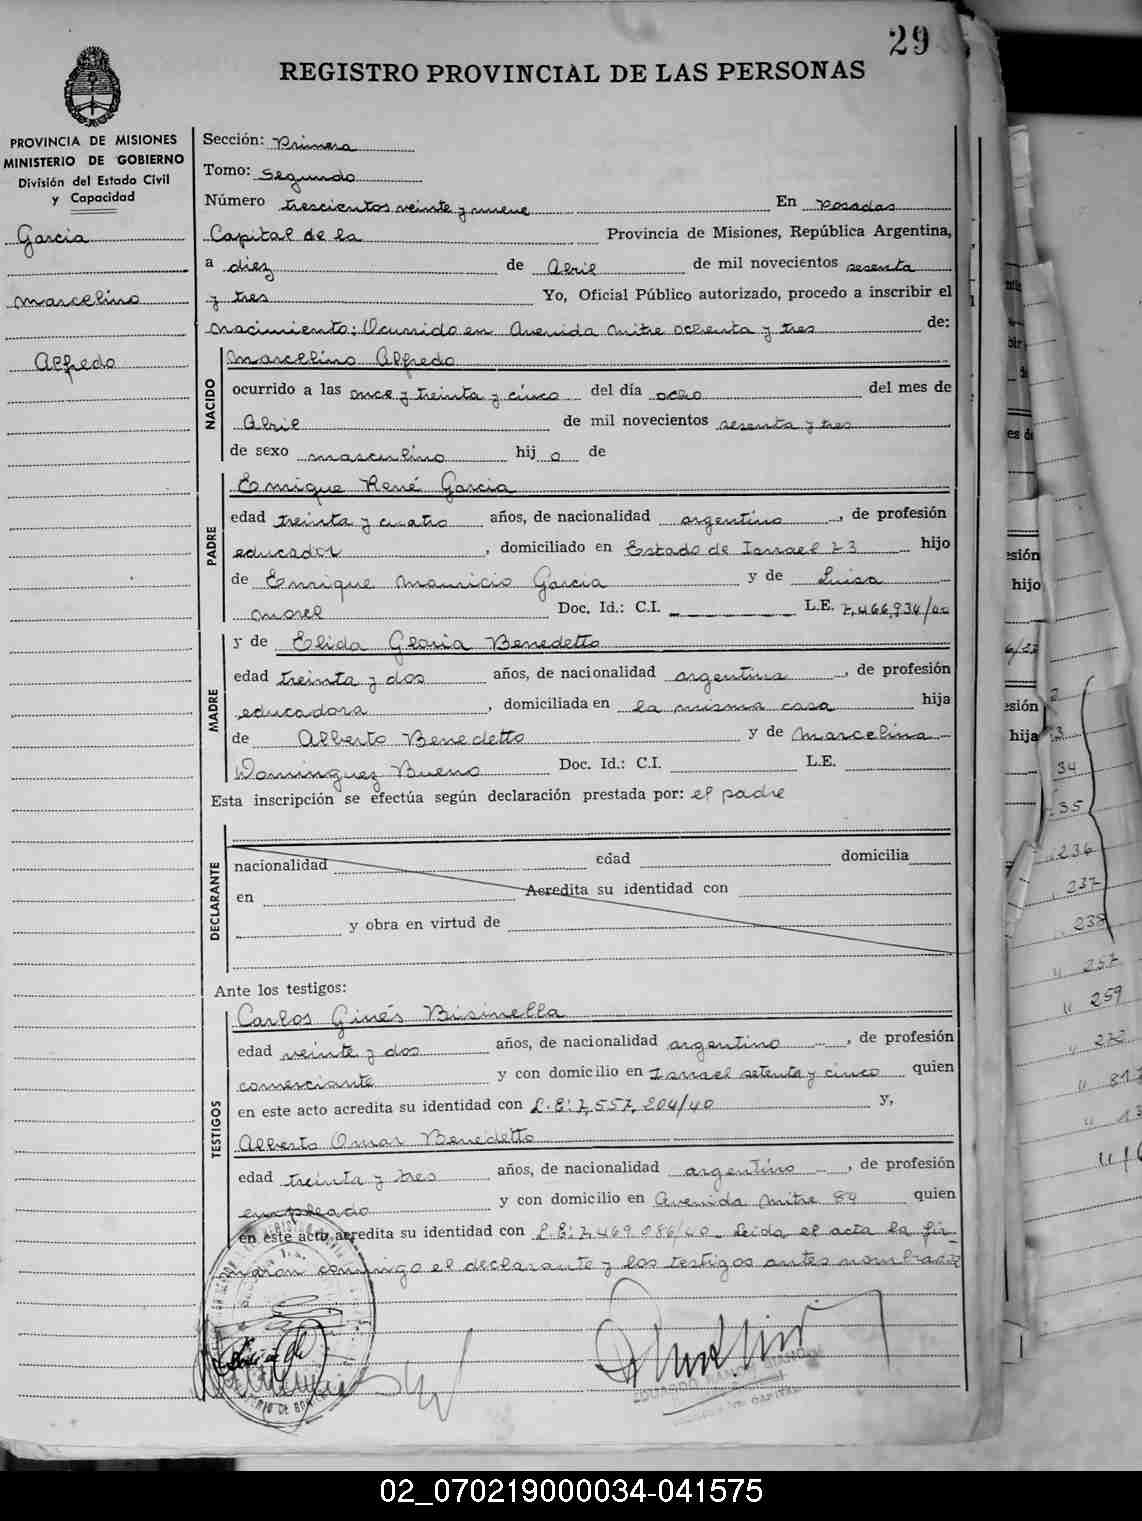 29
REGISTRO PROVINCIAL DE LAS PERSONAS
PROVINCIA DE MISIONES
MINISTERIO DE GOBIERNO
División del Estado Civil
y Capacidad
Garcia
Marcelino
Alfredo
Sección: Primera
Tomo: Segundo
Número trescientos veinte y nueve En Posadas
Capital de la Provincia de Misiones, República Argentina,
a diez de Abril de mil novecientos sesenta
y tres Yo, Oficial Público autorizado, procedo a inscribir el
nacimiento: Ocurrido en Avenida Mitre ochenta y tres de:
NACIDO
Marcelino Alfredo
ocurrido a las once y treinta y cinco del día ocho del mes de
Abril de mil novecientos sesenta y tres
de sexo masculino hij o de
PADRE
Enrique René Garcia
edad treinta y cuatro años, de nacionalidad argentino, de profesión
educador, domiciliado en Estado de Israel 73 hijo
de Enrique Mauricio Garcia y de Luisa
Morel Doc. Id.: C.I. L.E. 7,466,934/40
MADRE
y de Elida Gloria Benedetto
edad treinta y dos años, de nacionalidad argentina, de profesión
educadora, domiciliada en la misma casa hija
de Alberto Benedetto y de Marcelina
Dominguez Bueno Doc. Id.: C.I. L.E.
Esta inscripción se efectúa según declaración prestada por: el padre
DECLARANTE
nacionalidad edad domicilia
en Acredita su identidad con
y obra en virtud de
Ante los testigos:
TESTIGOS
Carlos Ginés Bisinella
edad veinte y dos años, de nacionalidad argentino, de profesión
comerciante y con domicilio en Israel setenta y cinco quien
en este acto acredita su identidad con L.E: 7,557,204/40 y,
Alberto Omar Benedetto
edad treinta y tres años, de nacionalidad argentino, de profesión
empleado y con domicilio en Avenida Mitre 84 quien
en este acto acredita su identidad con L.E: 7,469,086/40. Leida el acta la fir-
maron conmigo el declarante y los testigos antes nombrados
esión
hijo
esión
hija
34
35
236
237
238
257
259
272
02_070219000034-041575